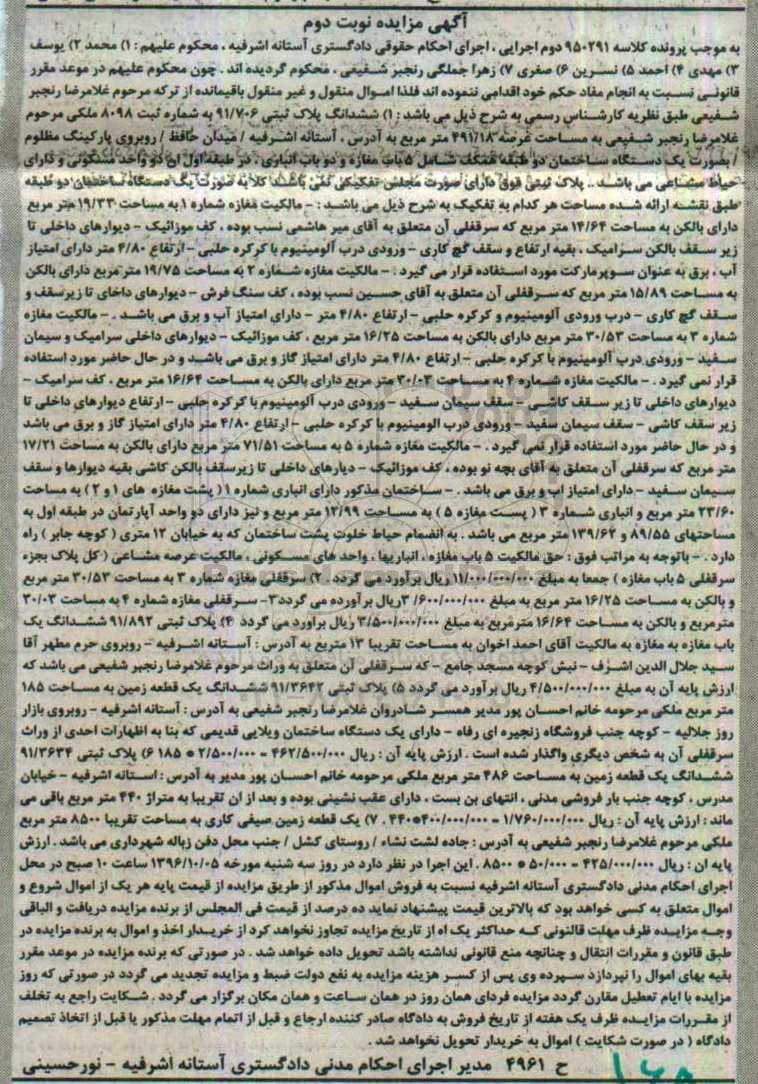 آگهی مزایده نوبت دوم
به موجب پرونده کلاسه ۹۵۰۲۹۱ دوم اجرایی ، اجرای احکام حقوقی دادگستری آستانه اشرفیه ، محکوم علیهم : ۱) محمد ۲) یوسف
۳) مهدی ۴) احمد ۵) نسرین ۶) صغری ۷) زهرا جملگی رنجبر شفیعی ، محکوم گردیده اند . چون محکوم علیهم در موعد مقرر
قانونی نسبت به انجام مفاد حکم خود اقدامی ننموده اند فلذا اموال منقول و غیر منقول باقیمانده از ترکه مرحوم غلامرضا رنجبر
شفیعی طبق نظریه کارشناس رسمی به شرح ذیل می باشد : ۱) ششدانگ پلاک ثبتی ۹۱/۷۰۶ به شماره ثبت ۸۰۹۸ ملکی مرحوم
غلامرضا رنجبر شفیعی به مساحت عرصه ۴۹۱/۱۸ متر مربع به آدرس ، آستانه اشرفیه / میدان حافظ / روبروی پارکینگ مظلوم
/ بصورت یک دستگاه ساختمان دو طبقه شامل ۵ باب مغازه و دو باب انباری ، در طبقه اول آن دو واحد مسکونی و دارای
حیاط مشاعی می باشد .. پلاک ثبتی فوق دارای صورت مجلس تفکیکی نمی باشد کلا به صورت یک دستگاه ساختمان دو طبقه
طبق نقشه ارائه شده مساحت هر کدام به تفکیک به شرح ذیل می باشد : - مالکیت مغازه شماره ۱ به مساحت ۱۹/۳۳ متر مربع
دارای بالکن به مساحت ۱۴/۶۴ متر مربع که سرقفلی آن متعلق به آقای میر هاشمی نسب بوده ، کف موزائیک - دیوارهای داخلی تا
زیر سقف بالکن سرامیک ، بقیه ارتفاع و سقف گچ کاری - ورودی درب آلومینیوم با کرکره حلبی - ارتفاع ۴/۸۰ متر دارای امتیاز
آب ، برق به عنوان سوپرمارکت مورد استفاده قرار می گیرد : - مالکیت مغازه شماره ۲ به مساحت ۱۹/۷۵ متر مربع دارای بالکن
به مساحت ۱۵/۸۹ متر مربع که سرقفلی آن متعلق به آقای حسین نسب بوده ، کف سنگ فرش - دیوارهای داخای تا زیرسقف و
سقف گچ کاری - درب ورودی آلومینیوم و کرکره حلبی - ارتفاع ۴/۸۰ متر - دارای امتیاز آب و برق می باشد . - مالکیت مغازه
شماره ۳ به مساحت ۳۰/۵۳ متر مربع دارای بالکن به مساحت ۱۶/۲۵ متر مربع ، کف موزائیک - دیوارهای داخلی سرامیک و سیمان
سفید - ورودی درب آلومینیوم با کرکره حلبی - ارتفاع ۴/۸۰ متر دارای امتیاز گاز و برق می باشد و در حال حاضر مورد استفاده
قرار نمی گیرد . - مالکیت مغازه شماره ۴ به مساحت ۳۰/۰۳ متر مربع دارای بالکن به مساحت ۱۶/۶۴ متر مربع ، کف سرامیک -
دیوارهای داخلی تا زیر سقف کاشی - سقف سیمان سفید - ورودی درب آلومینیوم با کرکره حلبی - ارتفاع دیوارهای داخلی تا
زیر سقف کاشی - سقف سیمان سفید - ورودی درب الومینیوم با کرکره حلبی - ارتفاع ۴/۸۰ متر دارای امتیاز گاز و برق می باشد
و در حال حاضر مورد استفاده قرار نمی گیرد . - مالکیت مغازه شماره ۵ به مساحت ۷۱/۵۱ متر مربع دارای بالکن به مساحت ۱۷/۲۱
متر مربع که سرقفلی آن متعلق به آقای بچه نو بوده ، کف موزائیک - دیارهای داخلی تا زیرسقف بالکن کاشی بقیه دیوارها و سقف
سیمان سفید - دارای امتیاز اب و برق می باشد . - ساختمان مذکور دارای انباری شماره ۱ ( پشت مغازه های ۱ و ۲ ) به مساحت
۲۳/۶۰ متر مربع و انباری شماره ۳ ( پست مغازه ۵ ) به مساحت ۱۲/۹۹ متر مربع و نیز دارای دو واحد آپارتمان در طبقه اول به
مساحتهای ۸۹/۵۵ و ۱۳۹/۶۲ متر مربع می باشد . به انضمام حیاط خلوت پشت ساختمان که به خیابان ۱۲ متری ( کوچه جابر ) راه
دارد . - باتوجه به مراتب فوق : حق مالکیت ۵ باب مغازه ، انباریها ، واحد های مسکونی ، مالکیت عرصه مشاعی ( کل پلاک بجزء
سرقفلی ۵ باب مغازه ) جمعا به مبلغ ۱۱/۰۰۰/۰۰۰/۰۰۰ ریال برآورد می گردد . ۲) سرقفلی مغازه شماره ۳ به مساحت ۳۰/۵۳ متر مربع
و بالکن به مساحت ۱۶/۲۵ متر مربع به مبلغ ۳/۶۰۰/۰۰۰/۰۰۰ ریال برآورده می گردد ۳- سرقفلی مغازه شماره ۴ به مساحت ۳۰/۰۳
مترمربع و بالکن به مساحت ۱۶/۶۴ مترمربع به مبلغ ۳/۵۰۰/۰۰۰/۰۰۰ ریال براورد می گردد ۴) پلاک ثبتی ۹۱/۸۹۲ ششدانگ یک
باب مغازه به مغازه به مالکیت آقای احمد اخوان به مساحت تقریبا ۱۳ متربع به آدرس : آستانه اشرفیه - روبروی حرم مطهر آقا
سید جلال الدین اشرف - نبش کوچه مسجد جامع - که سرقفلی آن متعلق به وراث مرحوم غلامرضا رنجبر شفیعی می باشد که
ارزش پایه آن به مبلغ ۴/۵۰۰/۰۰۰/۰۰۰ ریال برآورد می گردد ۵) پلاک ثبتی ۹۱/۳۶۴۲ ششدانگ یک قطعه زمین به مساحت ۱۸۵
متر مربع ملکی مرحومه خانم احسان پور مدیر همسر شادروان غلامرضا رنجبر شفیعی به آدرس : آستانه اشرفیه - روبروی بازار
روز جلالیه - کوچه جنب فروشگاه زنجیره ای رفاه - دارای یک دستگاه ساختمان ویلایی قدیمی که بنا به اظهارات احدی از وراث
سرقفلی آن به شخص دیگری واگذار شده است . ارزش پایه آن : ریال ۴۶۲/۵۰۰/۰۰۰ = ۲/۵۰۰/۰۰۰ * ۱۸۵ ۶) پلاک ثبتی ۹۱/۳۶۳۴
ششدانگ یک قطعه زمین به مساحت ۴۸۶ متر مربع ملکی مرحومه خانم احسان پور مدیر به آدرس : استانه اشرفیه - خیابان
مدرس ، کوچه جنب بار فروشی مدنی ، انتهای بن بست ، دارای عقب نشینی بوده و بعد از ان تقریبا به متراژ ۴۴۰ متر مربع باقی می
ماند : ارزش پایه آن : ریال ۱/۷۶۰/۰۰۰/۰۰۰ = ۴۴۰*۴۰۰/۰۰۰/۰۰۰ . ۷) یک قطعه زمین صیفی کاری به مساحت تقریبا ۸۵۰۰ متر مربع
ملکی مرحوم غلامرضا رنجبر شفیعی به آدرس : جاده لشت نشاء / روستای کشل / جنب محل دفن زباله شهرداری می باشد . ارزش
پایه ان : ریال ۴۲۵/۰۰۰/۰۰۰ = ۵۰/۰۰۰ * ۸۵۰۰ . این اجرا در نظر دارد در روز سه شنبه مورخه ۱۳۹۶/۱۰/۰۵ ساعت ۱۰ صبح در محل
اجرای احکام مدنی دادگستری آستانه اشرفیه نسبت به فروش اموال مذکور از طریق مزایده از قیمت پایه هر یک از اموال شروع و
اموال متعلق به کسی خواهد بود که بالاترین قیمت پیشنهاد نماید ده درصد از قیمت فی المجلس از برنده مزایده دریافت و الباقی
وجه مزایده ظرف مهلت قالنونی که حداکثر یک اه از تاریخ مزایده تجاوز نخواهد کرد از خریدار اخذ و اموال به برنده مزایده در
طبق قانون و مقررات انتقال و چنانچه منع قانونی نداشته باشد تحویل داده خواهد شد . در صورتی که برنده مزایده در موعد مقرر
بقیه بهای اموال را نپردازد سپرده وی پس از کسر هزینه مزایده به نفع دولت ضبط و مزایده تجدید می گردد در صورتی که روز
مزایده با ایام تعطیل مقارن گردد مزایده فردای همان روز در همان ساعت و همان مکان برگزار می گردد . شکایت راجع به تخلف
از مقررات مزایده ظرف یک هفته از تاریخ فروش به دادگاه صادر کننده ارجاع و قبل از اتمام مهلت مذکور یا قبل از اتخاذ تصمیم
دادگاه ( در صورت شکایت ) اموال به خریدار تحویل نخواهد شد .
ح ۴۹۶۱ مدیر اجرای احکام مدنی دادگستری آستانه اشرفیه - نورحسینی